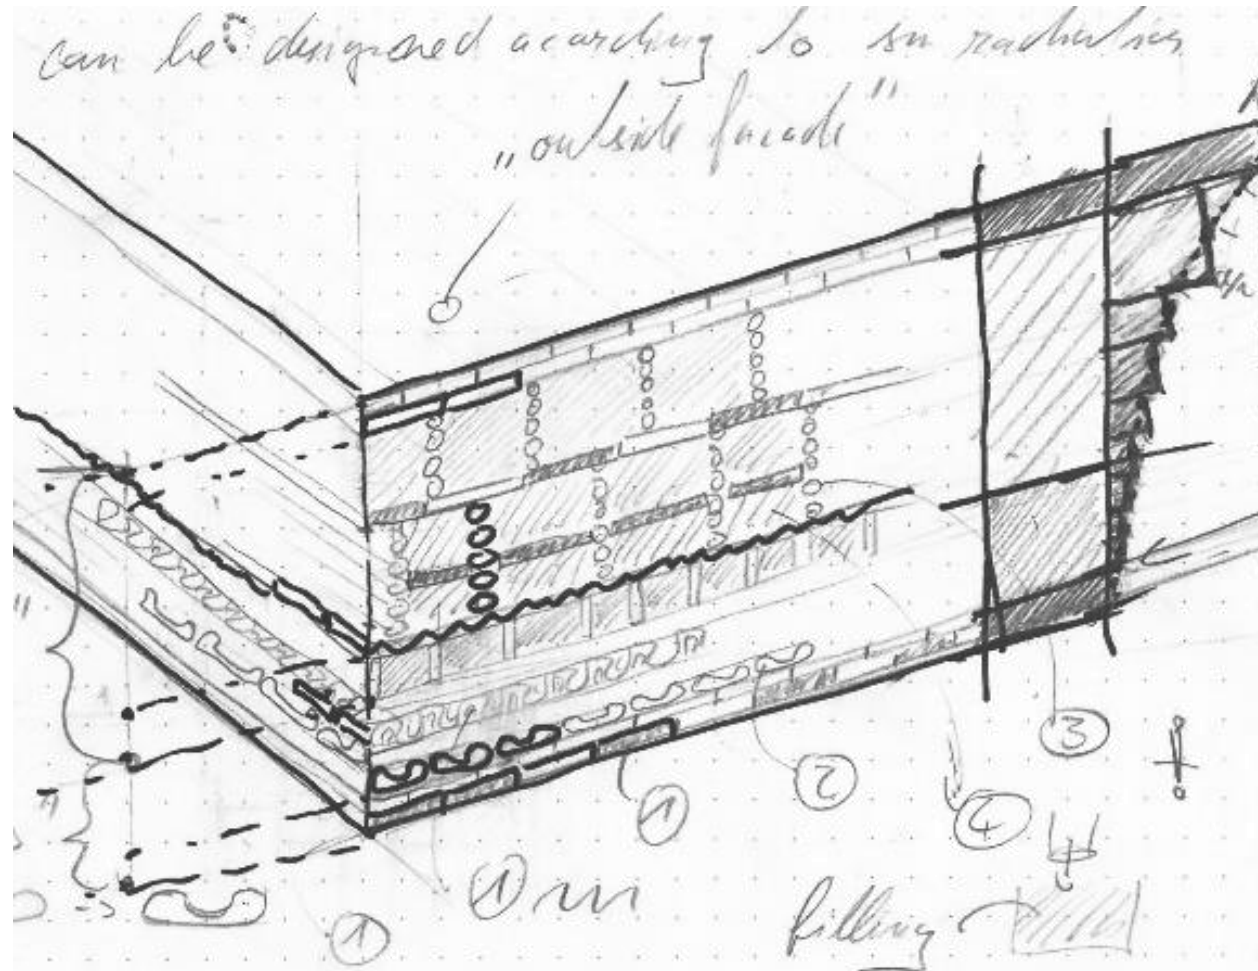 can be designed acarding to sun radiation
"outside facade"
3
!
2
1
4
1 m
1
filling